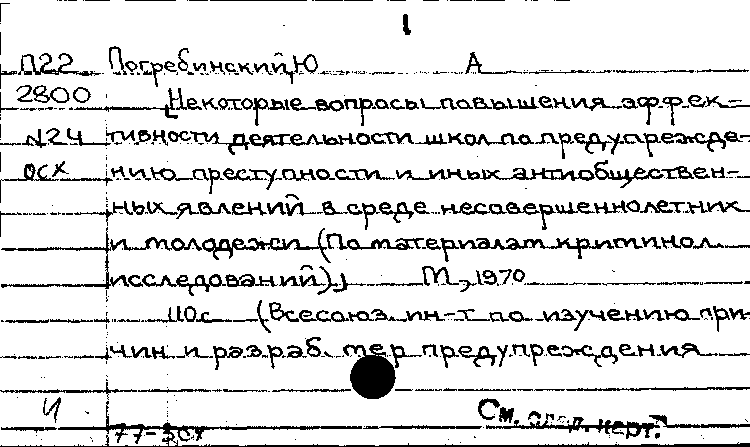 1
П22 Погребинский, Ю А
2800 [Некоторые вопросы повышения эффек-
N24 тивности деятельности школ по предупрежде-
осх нию преступности и иных антиобществен-
ных явлений в среде несовершеннолетних
и молодежи (По материалам криминол.
исследований)] М, 1970
110с (Всесоюз. ин-т по изучению при-
чин и разраб. мер предупреждения
И См. след. карт.
77-3сх